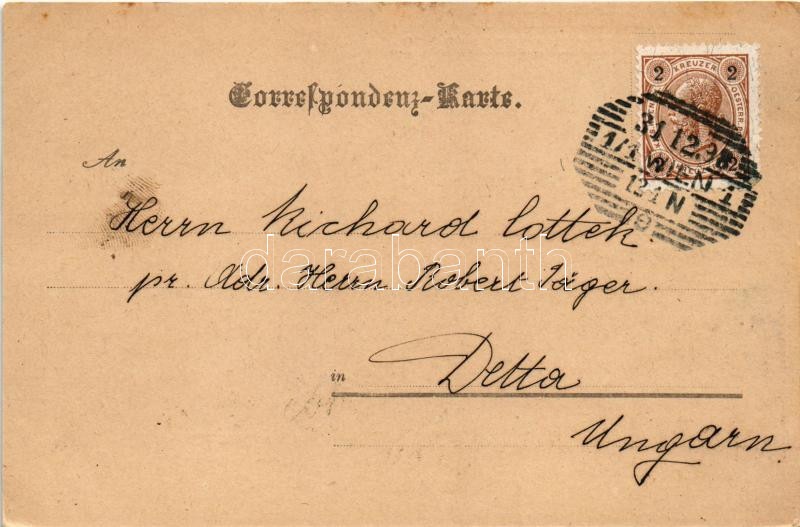 Correspondenz-Karte.
2 KREUZER 2
31 12.9
1/1 WIEN 1
12-1 N
8
An
Herrn Richard Cottek
darabanth
pr. Adr. Herrn Robert Jäger.
in Detta
Ungarn